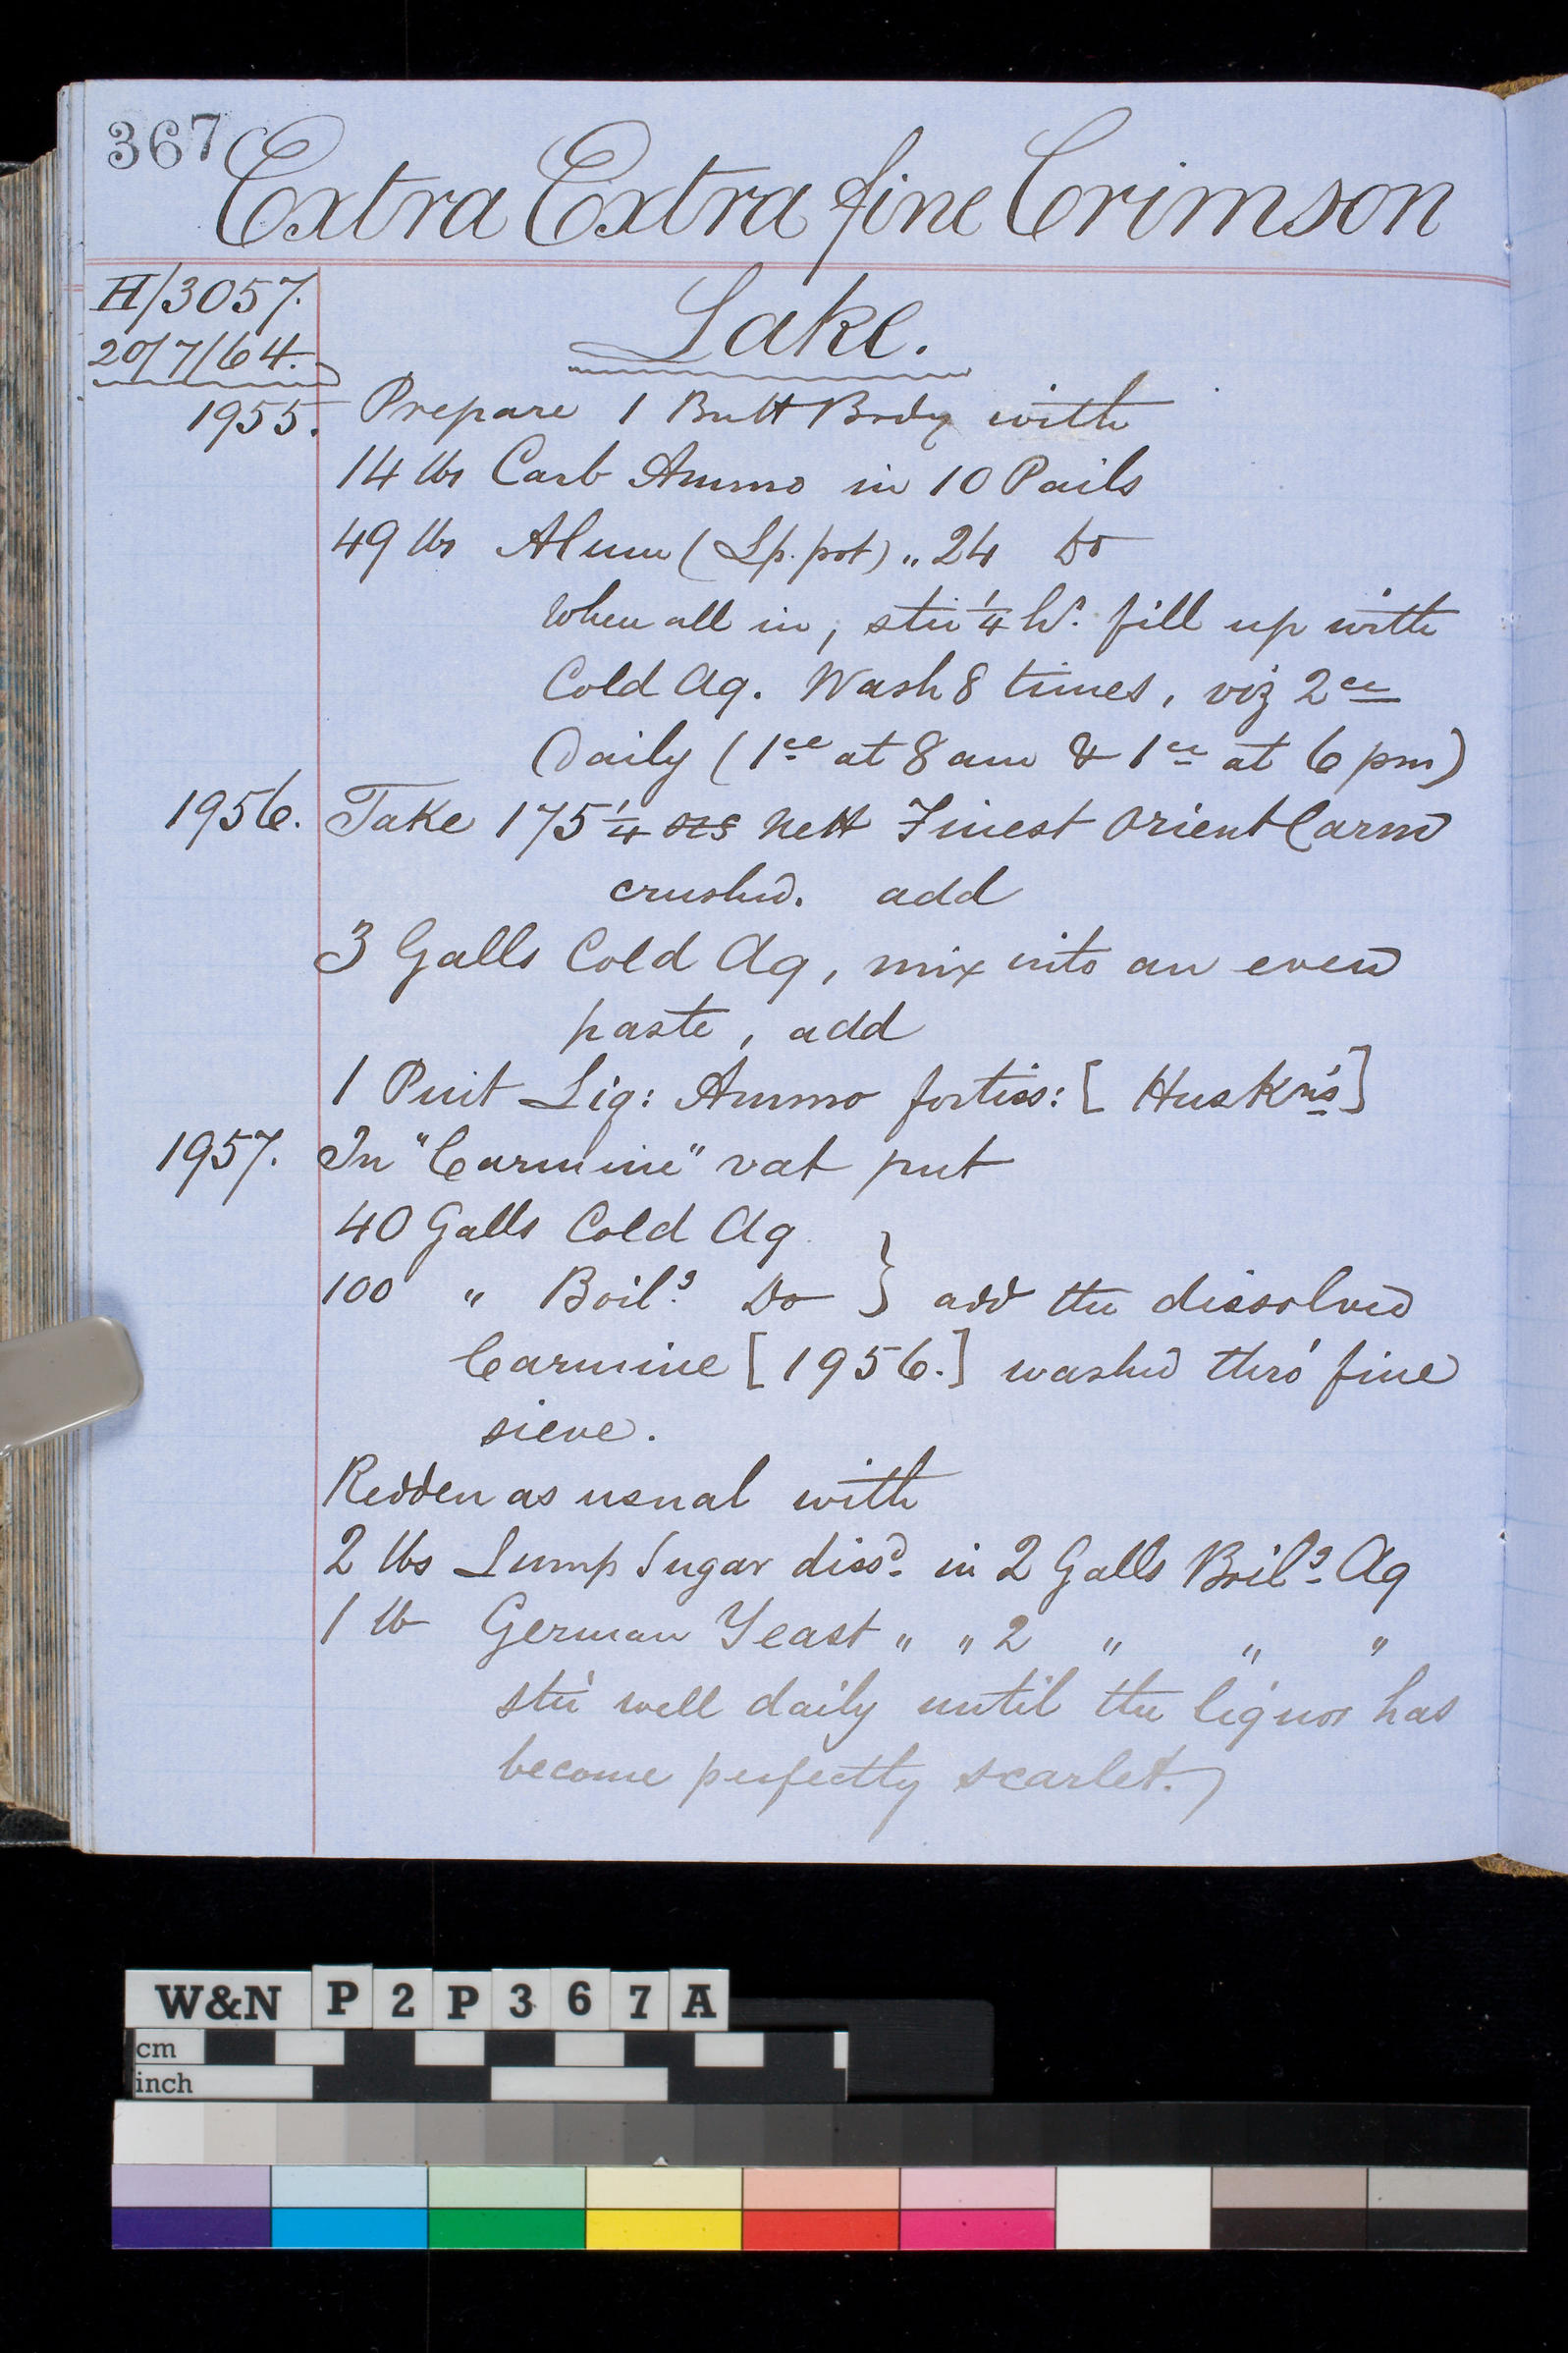 367
Extra Extra fine Crimson
H/3057.
Lake.
20/7/64.
1955. Prepare 1 Butt Body with
14 lbs Carb Ammo in 10 Pails
49 lbs Alum (Lp. pot) „ 24 Do
When all in, stir 1/4 hr. fill up with
Cold Aq. Wash 8 times, viz 2ce
Daily (1ce at 8 am & 1ce at 6 pm)
1956. Take 175 1/4 ozs nett Finest Orient Carm
crushd. add
3 Galls Cold Aq, mix into an even
paste, add
1 Pint Liq: Ammo fortiss: [Huskn's]
1957. In "Carmine" vat put
40 Galls Cold Aq
100 „ Boilg Do } add the dissolved
Carmine [1956.] washd thro' fine
sieve.
Redden as usual with
2 lbs Lump Sugar dissd in 2 Galls Boilg Aq
1 lb German Yeast „ „ 2 „ „ „
stir well daily until the liquor has
become perfectly scarlet.)
W&N P2P367A
cm
inch